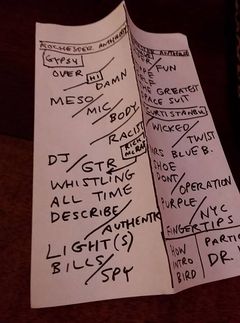 ROCHESTER ANTHEM
GYPSY
OVER / HI
DAMN
MESO / MIC
BODY
RACIST
DJ / GTR
WHISTLING
ALL TIME
DESCRIBE
AUTHENTIC
LIGHT(S)
BILLS / SPY
FUN
THE GREATEST
SPACE SUIT
WICKED
TWIST
MRS BLUE B.
SHOE
DONT
OPERATION
PURPLE / NYC
FINGERTIPS
HOW
INTRO
BIRD
PARTI
DR.